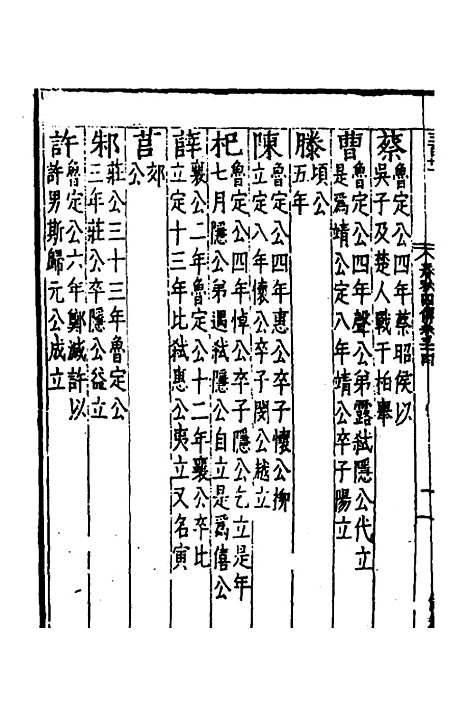 蔡
魯定公四年蔡昭侯以
吳子及楚人戰于柏舉
曹
魯定公四年聲公弟露弒隱公代立
是為靖公定八年靖公卒子陽立
滕
頃公
五年
陳
魯定公四年惠公卒子懷公柳
立定八年懷公卒子閔公越立
杞
魯定公四年悼公卒子隱公乞立是年
七月隱公弟遇弒隱公自立是為僖公
薛
襄公二年魯定公十二年襄公卒比
立定十三年比弒惠公夷立又名寅
莒
郊
公
邾
莊公三十三年魯定公
三年莊公卒隱公益立
許
魯定公六年鄭滅許以
許男斯歸元公成立